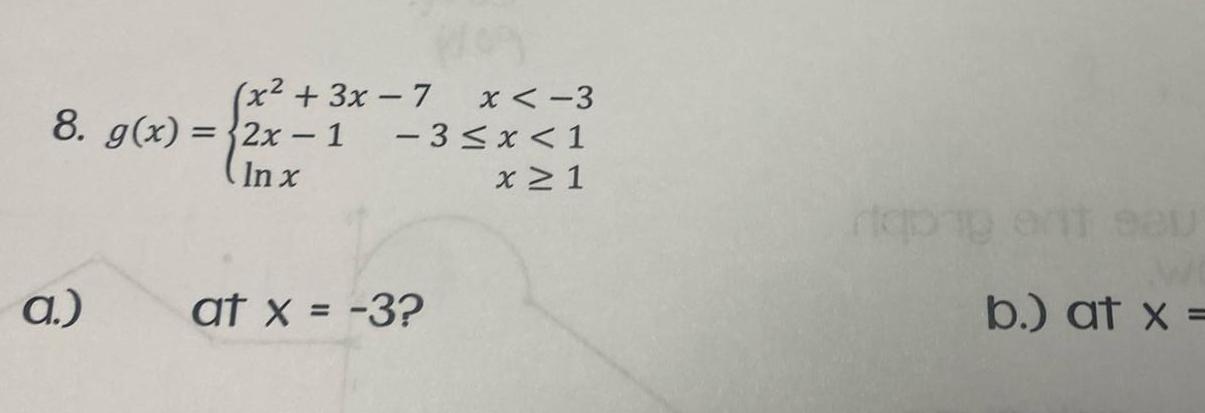 8. g(x) = {x² + 3x − 7 x < −3
2x − 1 − 3 ≤ x < 1
ln x x ≥ 1
a.) at x = -3?
b.) at x =